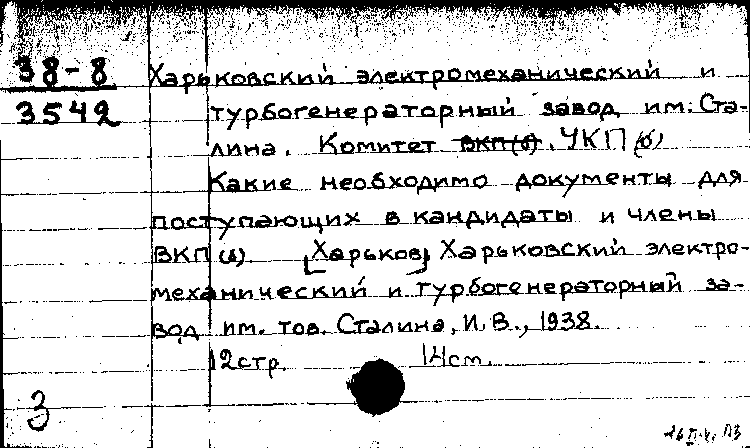 38-8
3542
Харьковский электромеханический и
турбогенераторный завод им. Ста-
лина. Комитет ВКП(б). УКП(б)
Какие необходимо документы для
поступающих в кандидаты и члены
ВКП(б). [Харьков], Харьковский электро-
механический и турбогенераторный за-
вод им. тов. Сталина, И.В., 1938.
12стр. 14см.
З